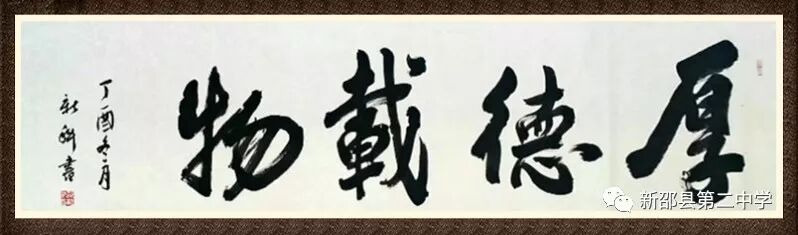 厚德載物
丁酉冬月
新 書
新邵县第二中学